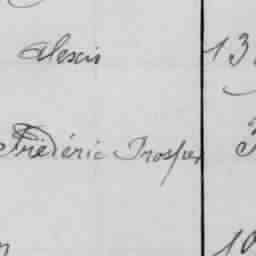 Alexis 13
Frédéric Prosper